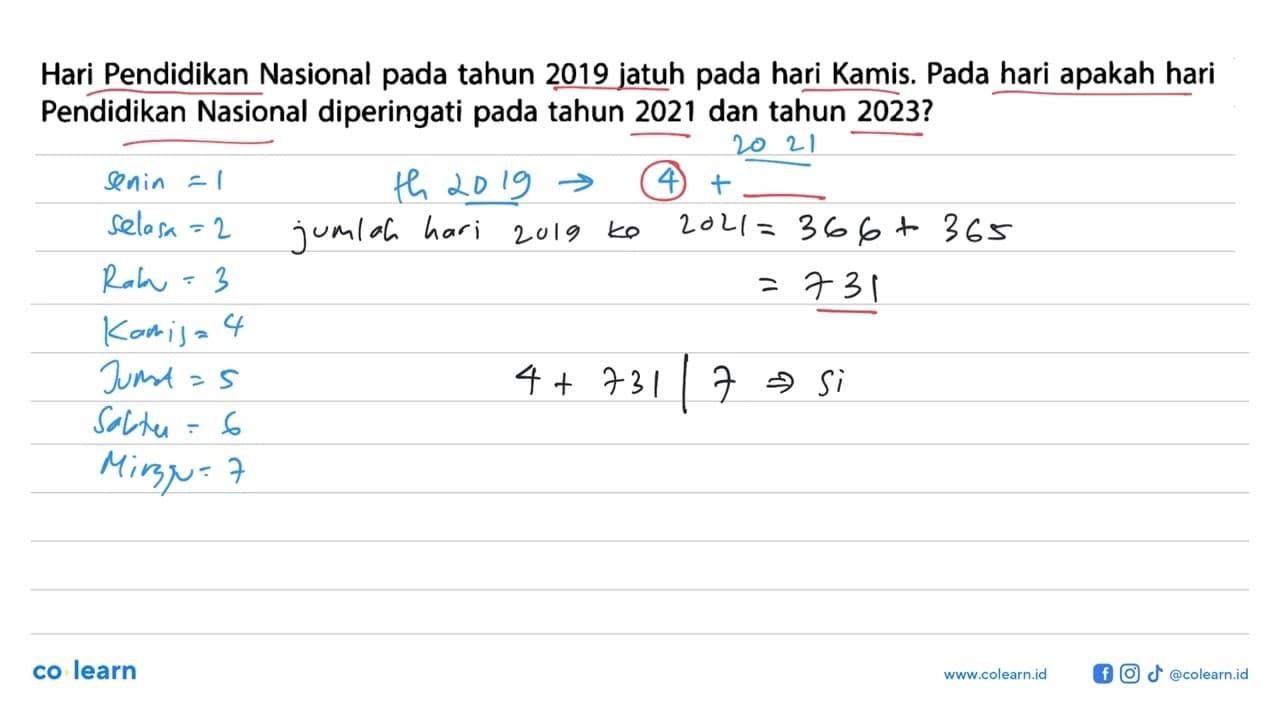 Hari Pendidikan Nasional pada tahun 2019 jatuh pada hari Kamis. Pada hari apakah hari
Pendidikan Nasional diperingati pada tahun 2021 dan tahun 2023?
2021
senin = 1
th 2019 → 4 + ____
selasa = 2
jumlah hari 2019 ke 2021 = 366 + 365
Rabu = 3
= 731
Kamis = 4
Jumat = 5
4 + 731 | 7 ⇒ si
Sabtu = 6
Minggu = 7
co learn
www.colearn.id
@colearn.id